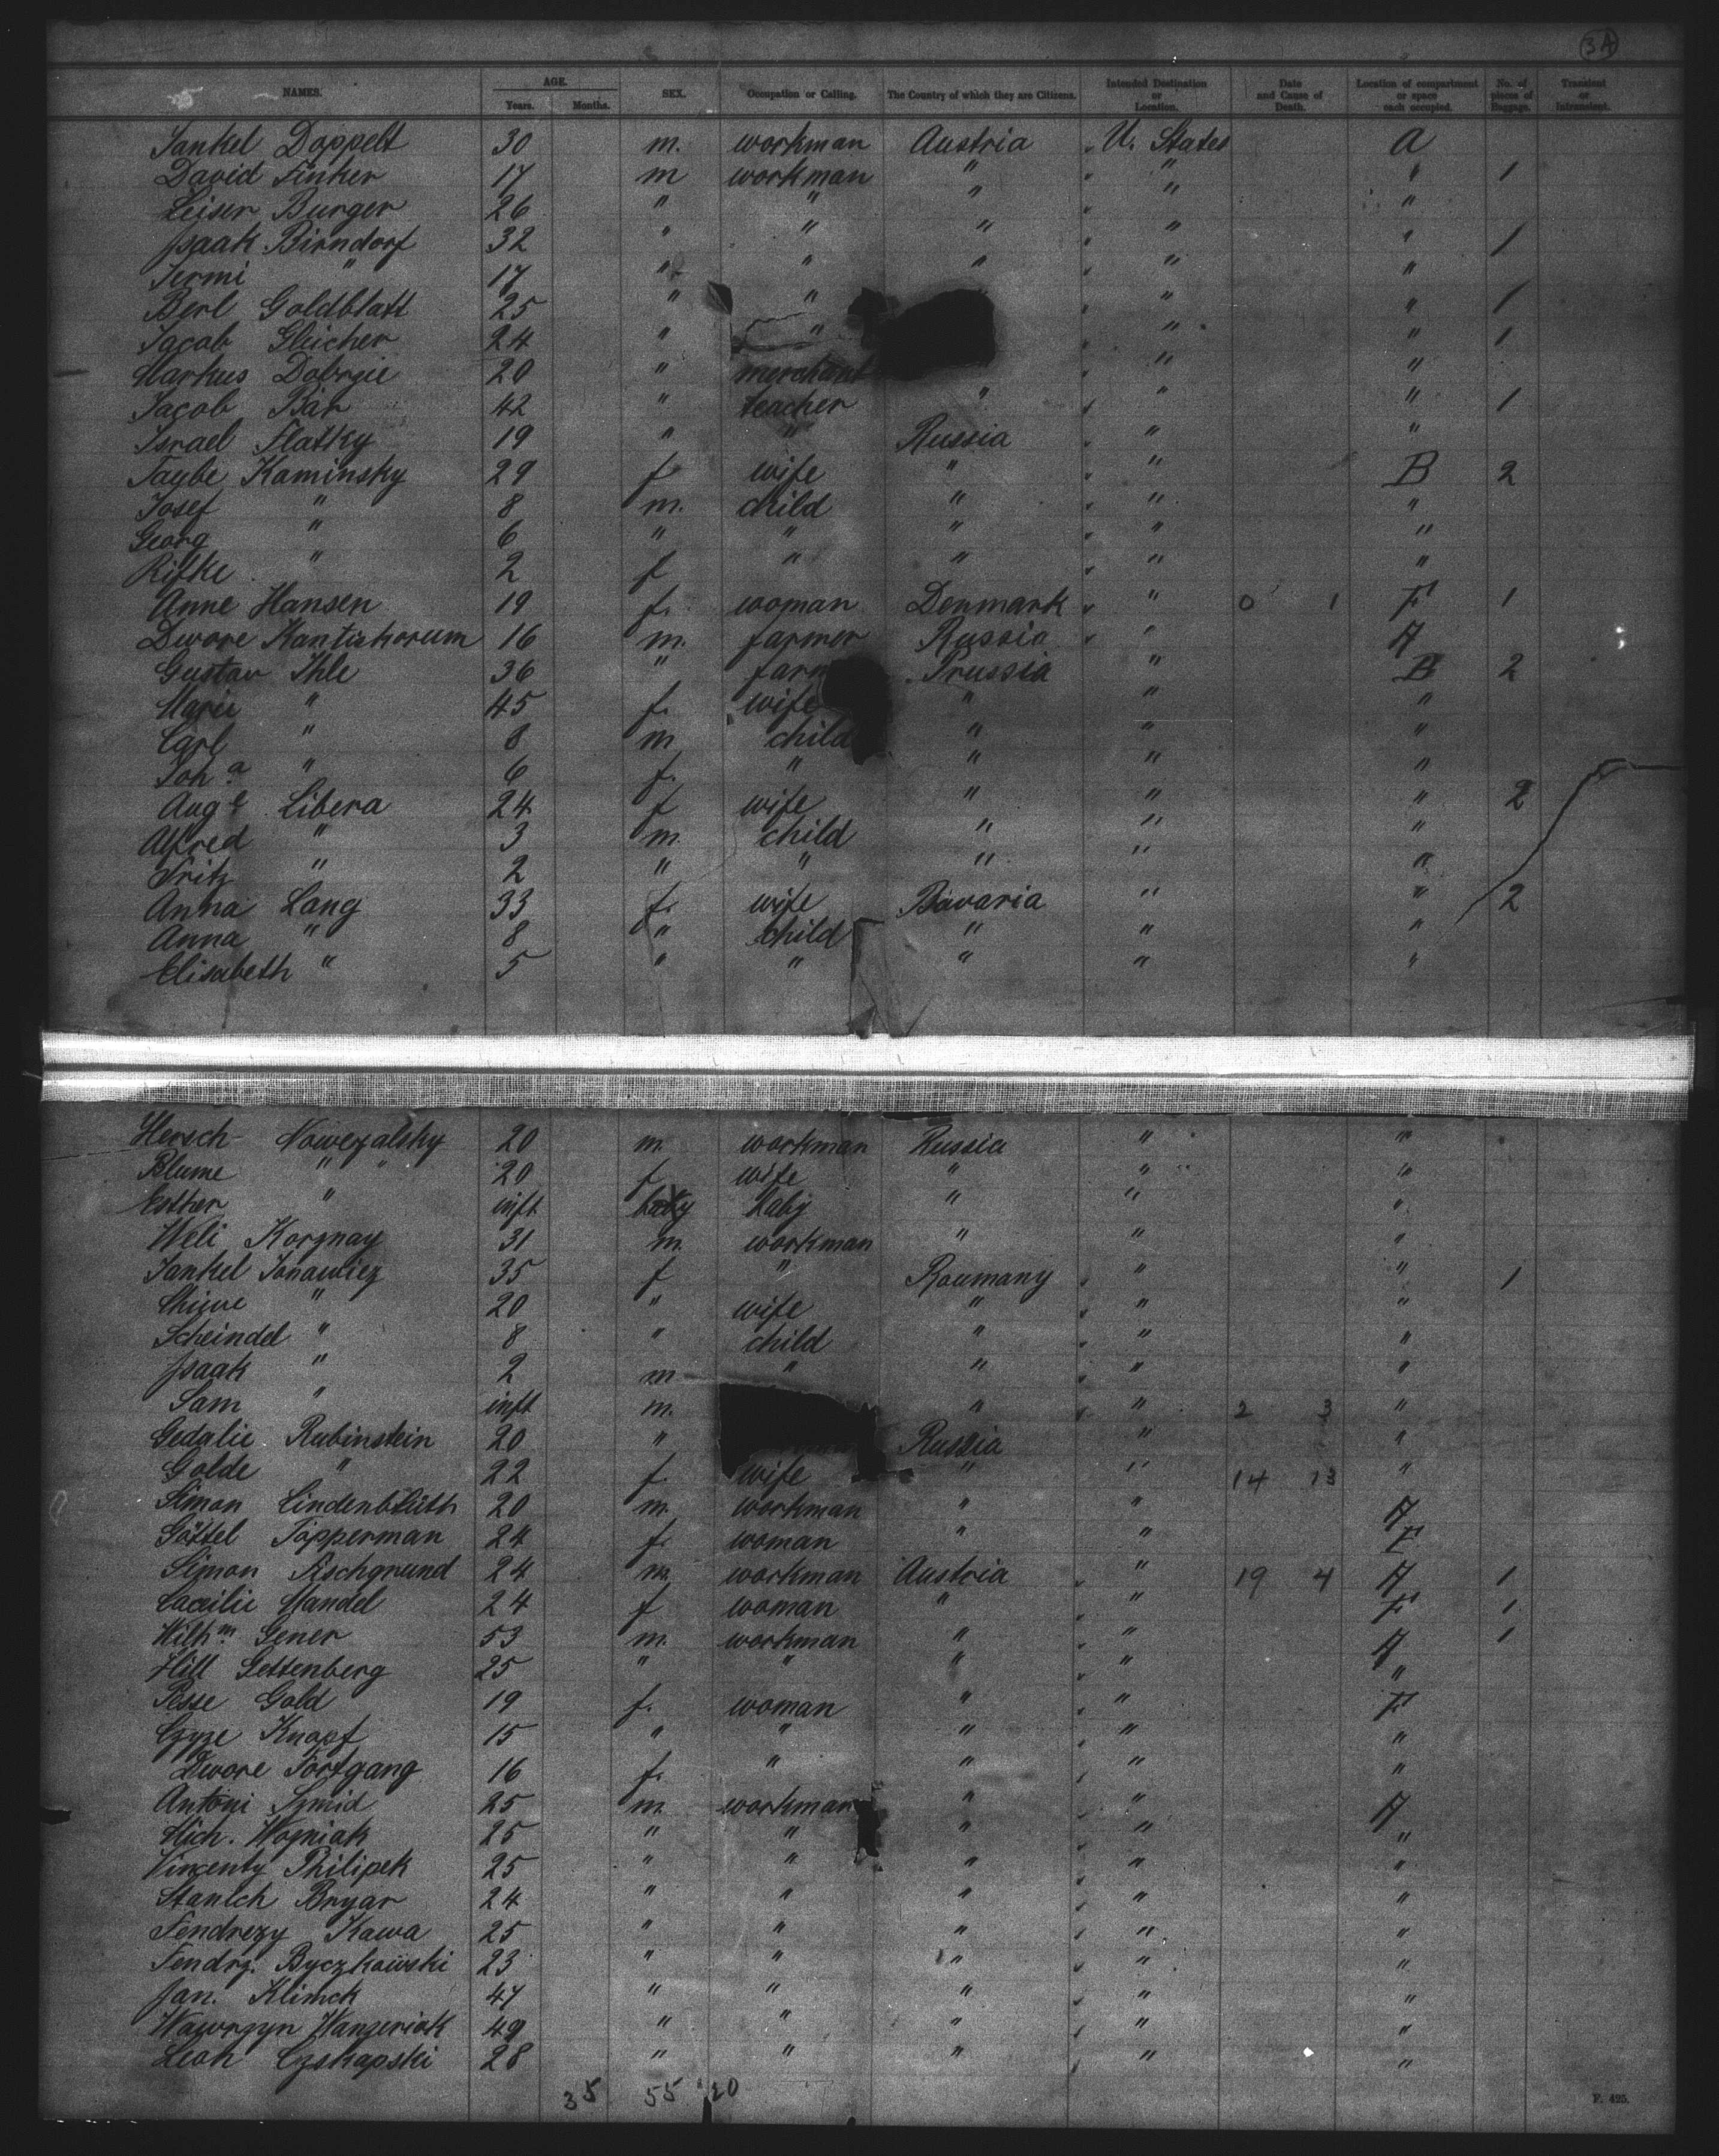 3A
NAMES. AGE. Years. Months. SEX. Occupation or Calling. The Country of which they are Citizens. Intended Destination or Location. Date and Cause of Death. Location of compartment or space each occupied. No. of pieces of Baggage. Transient or Intransient.
Jankel Doppelt 30 m. workman Austria U. States A
David Finker 17 m workman " " " 1
Leiser Burger 26 " " " " "
Isaak Birndorf 32 " " " " " 1
" 17 " " " " "
Berl Goldblatt 25 " " " " 1
Jacob Gleicher 24 " " " " 1
Markus 20 " merchant " "
Jacob Bär 42 " teacher " " " 1
Israel Flatky 19 " " Russia " "
Taybe Kaminsky 29 f wife " " B 2
Josef " 8 m. child " " "
Georg " 6 " " " " "
Rifke " 2 f " " " "
Anne Hansen 19 f. woman Denmark " 0 1 F 1
Dwore 16 m. farmer Russia " A
Gustav Ihle 36 " farm Prussia " B 2
Marie " 45 f. wife " " "
Carl " 8 m child " " "
Joh.a " 6 f. " " " "
Aug.e Libera 24 f wife " " " 2
Alfred " 3 m. child " " "
Fritz " 2 " " " " "
Anna Lang 33 f. wife Bavaria " " 2
Anna " 8 " child " " "
Elisabeth " 5 " " " " "
Hersch Nowezalsky 20 m. workman Russia " "
Blume " " 20 f wife " " "
Esther " inft baby baby " " "
Weli Korznay 31 m. workman " " "
Jankel Jonawicz 35 f " Roumany " " 1
" 20 " wife " " "
Scheindel " 8 " child " " "
Isaak " 2 m " " " "
Sam " inft m. " " 2 3 "
Gedalie Rubinstein 20 " Russia " "
Golde " 22 f. wife " " 14 13 "
Simon Lindenblüth 20 m. workman " " A
Göttel Töpperman 24 f. woman " " F
Simon Aschgrund 24 m. workman Austria " 19 4 A 1
Caecilie Mandel 24 f woman " " F 1
Wilh.m Gener 53 m. workman " " A 1
Hill Gettenberg 25 " " " " "
Pesse Gold 19 f. woman " " F
Knopf 15 " " " " "
Dwore Fortgang 16 f. " " " "
Antoni Szmid 25 m. workman " " A
Mich. Wozniak 25 " " " " "
Vincenty Philipek 25 " " " " "
Bryar 24 " " " " "
Jendrezy Kawa 25 " " " " "
Jendrz. Byczkowski 23 " " " " "
Jan. Klimek 47 " " " " "
Wawrzyn 49 " " " " "
Leon 28 " " " " "
35 55 20
F. 425.